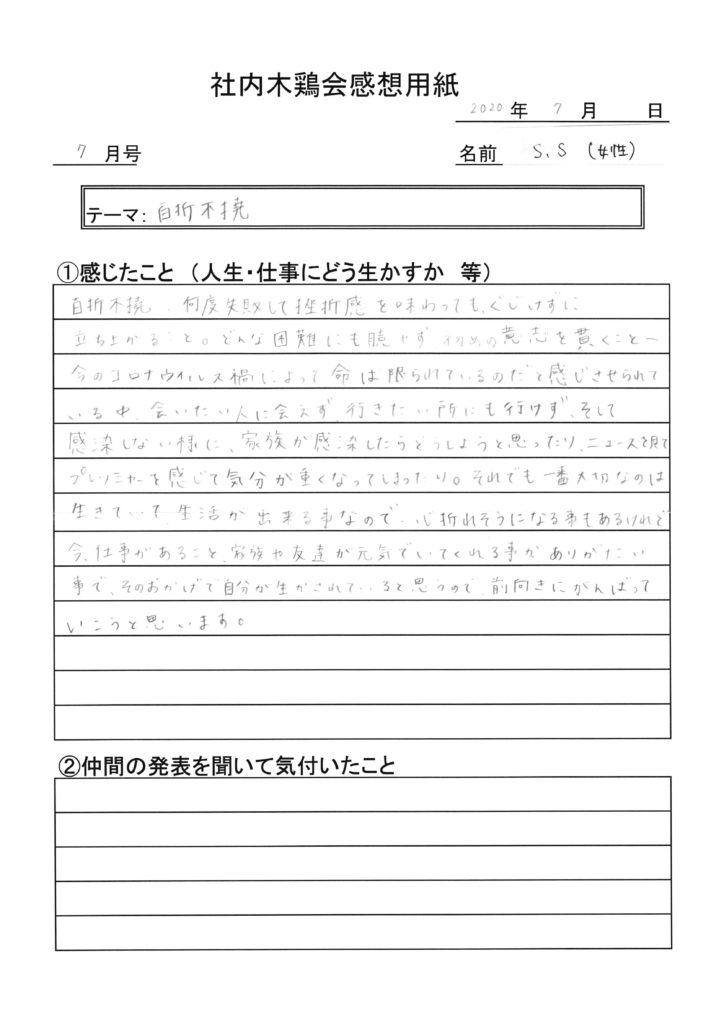 社内木鶏会感想用紙
2020 年 7 月 日
7 月号 名前 S、S (女性)
テーマ: 百折不撓
①感じたこと (人生・仕事にどう生かすか 等)
百折不撓、何度失敗して挫折感を味わっても、くじけずに
立ち上がること。どんな困難にも臆せず初めの意志を貫くこと―
今のコロナウイルス禍によって命は限られているのだと感じさせられて
いる中、会いたい人に会えず、行きたい所にも行けず、そして
感染しない様に、家族が感染したらどうしようと思ったり、ニュースを見て
プレッシャーを感じて気分が重くなってしまったり。それでも一番大切なのは
生きていて生活が出来る事なので、心折れそうになる事もあるけれど
今、仕事があること、家族や友達が元気でいてくれる事がありがたい
事で、そのおかげで自分が生かされていると思うので、前向きにがんばって
いこうと思います。
②仲間の発表を聞いて気付いたこと